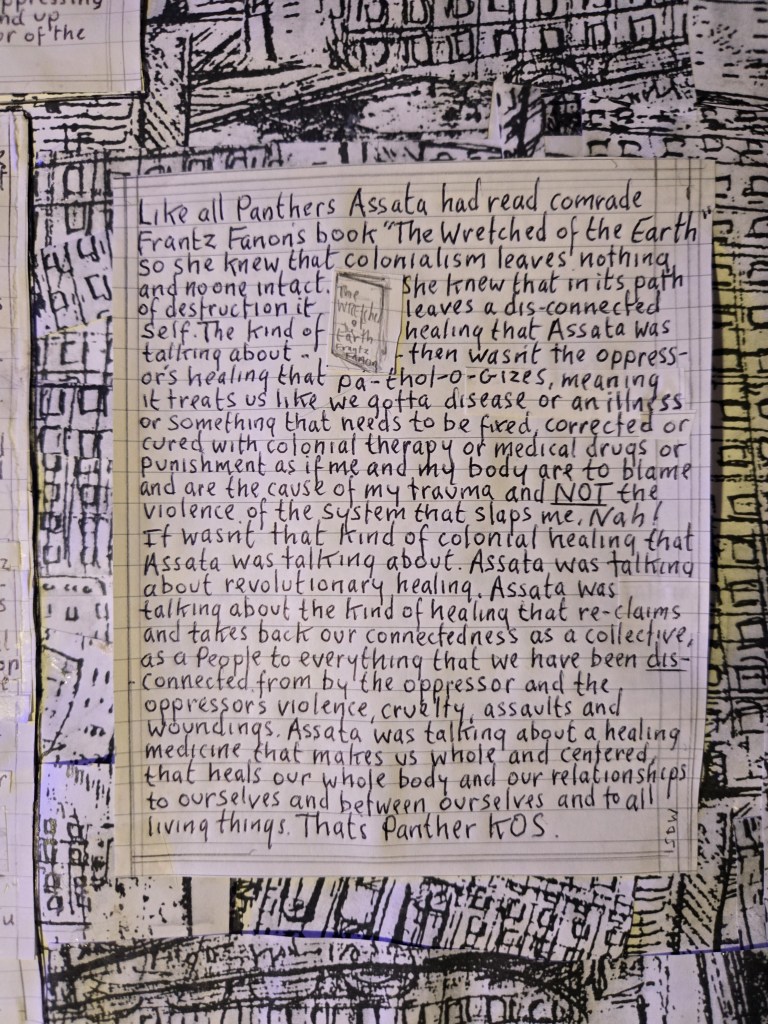 pressing
nd up
or of the
Like all Panthers Assata had read comrade
Frantz Fanon's book "The Wretched of the Earth"
so she knew that colonialism leaves nothing
and no one intact. She knew that in its path
of destruction it leaves a dis-connected
self. The kind of healing that Assata was
talking about - - then wasnt the oppress-
or's healing that pa-thol-o-gizes, meaning
it treats us like we gotta disease or an illness
or something that needs to be fixed, corrected or
cured with colonial therapy or medical drugs or
punishment as if me and my body are to blame
and are the cause of my trauma and NOT the
violence of the system that slaps me. Nah!
If wasnt that kind of colonial healing that
Assata was talking about. Assata was talking
about revolutionary healing. Assata was
talking about the kind of healing that re-claims
and takes back our connectedness as a collective,
as a People to everything that we have been dis-
-connected from by the oppressor and the
oppressors violence, cruelty, assaults and
woundings. Assata was talking about a healing
medicine that makes us whole and centered,
that heals our whole body and our relationships
to ourselves and between ourselves and to all
living things. Thats Panther KOS.
The
Wretched
of
Earth
Frantz
Fanon